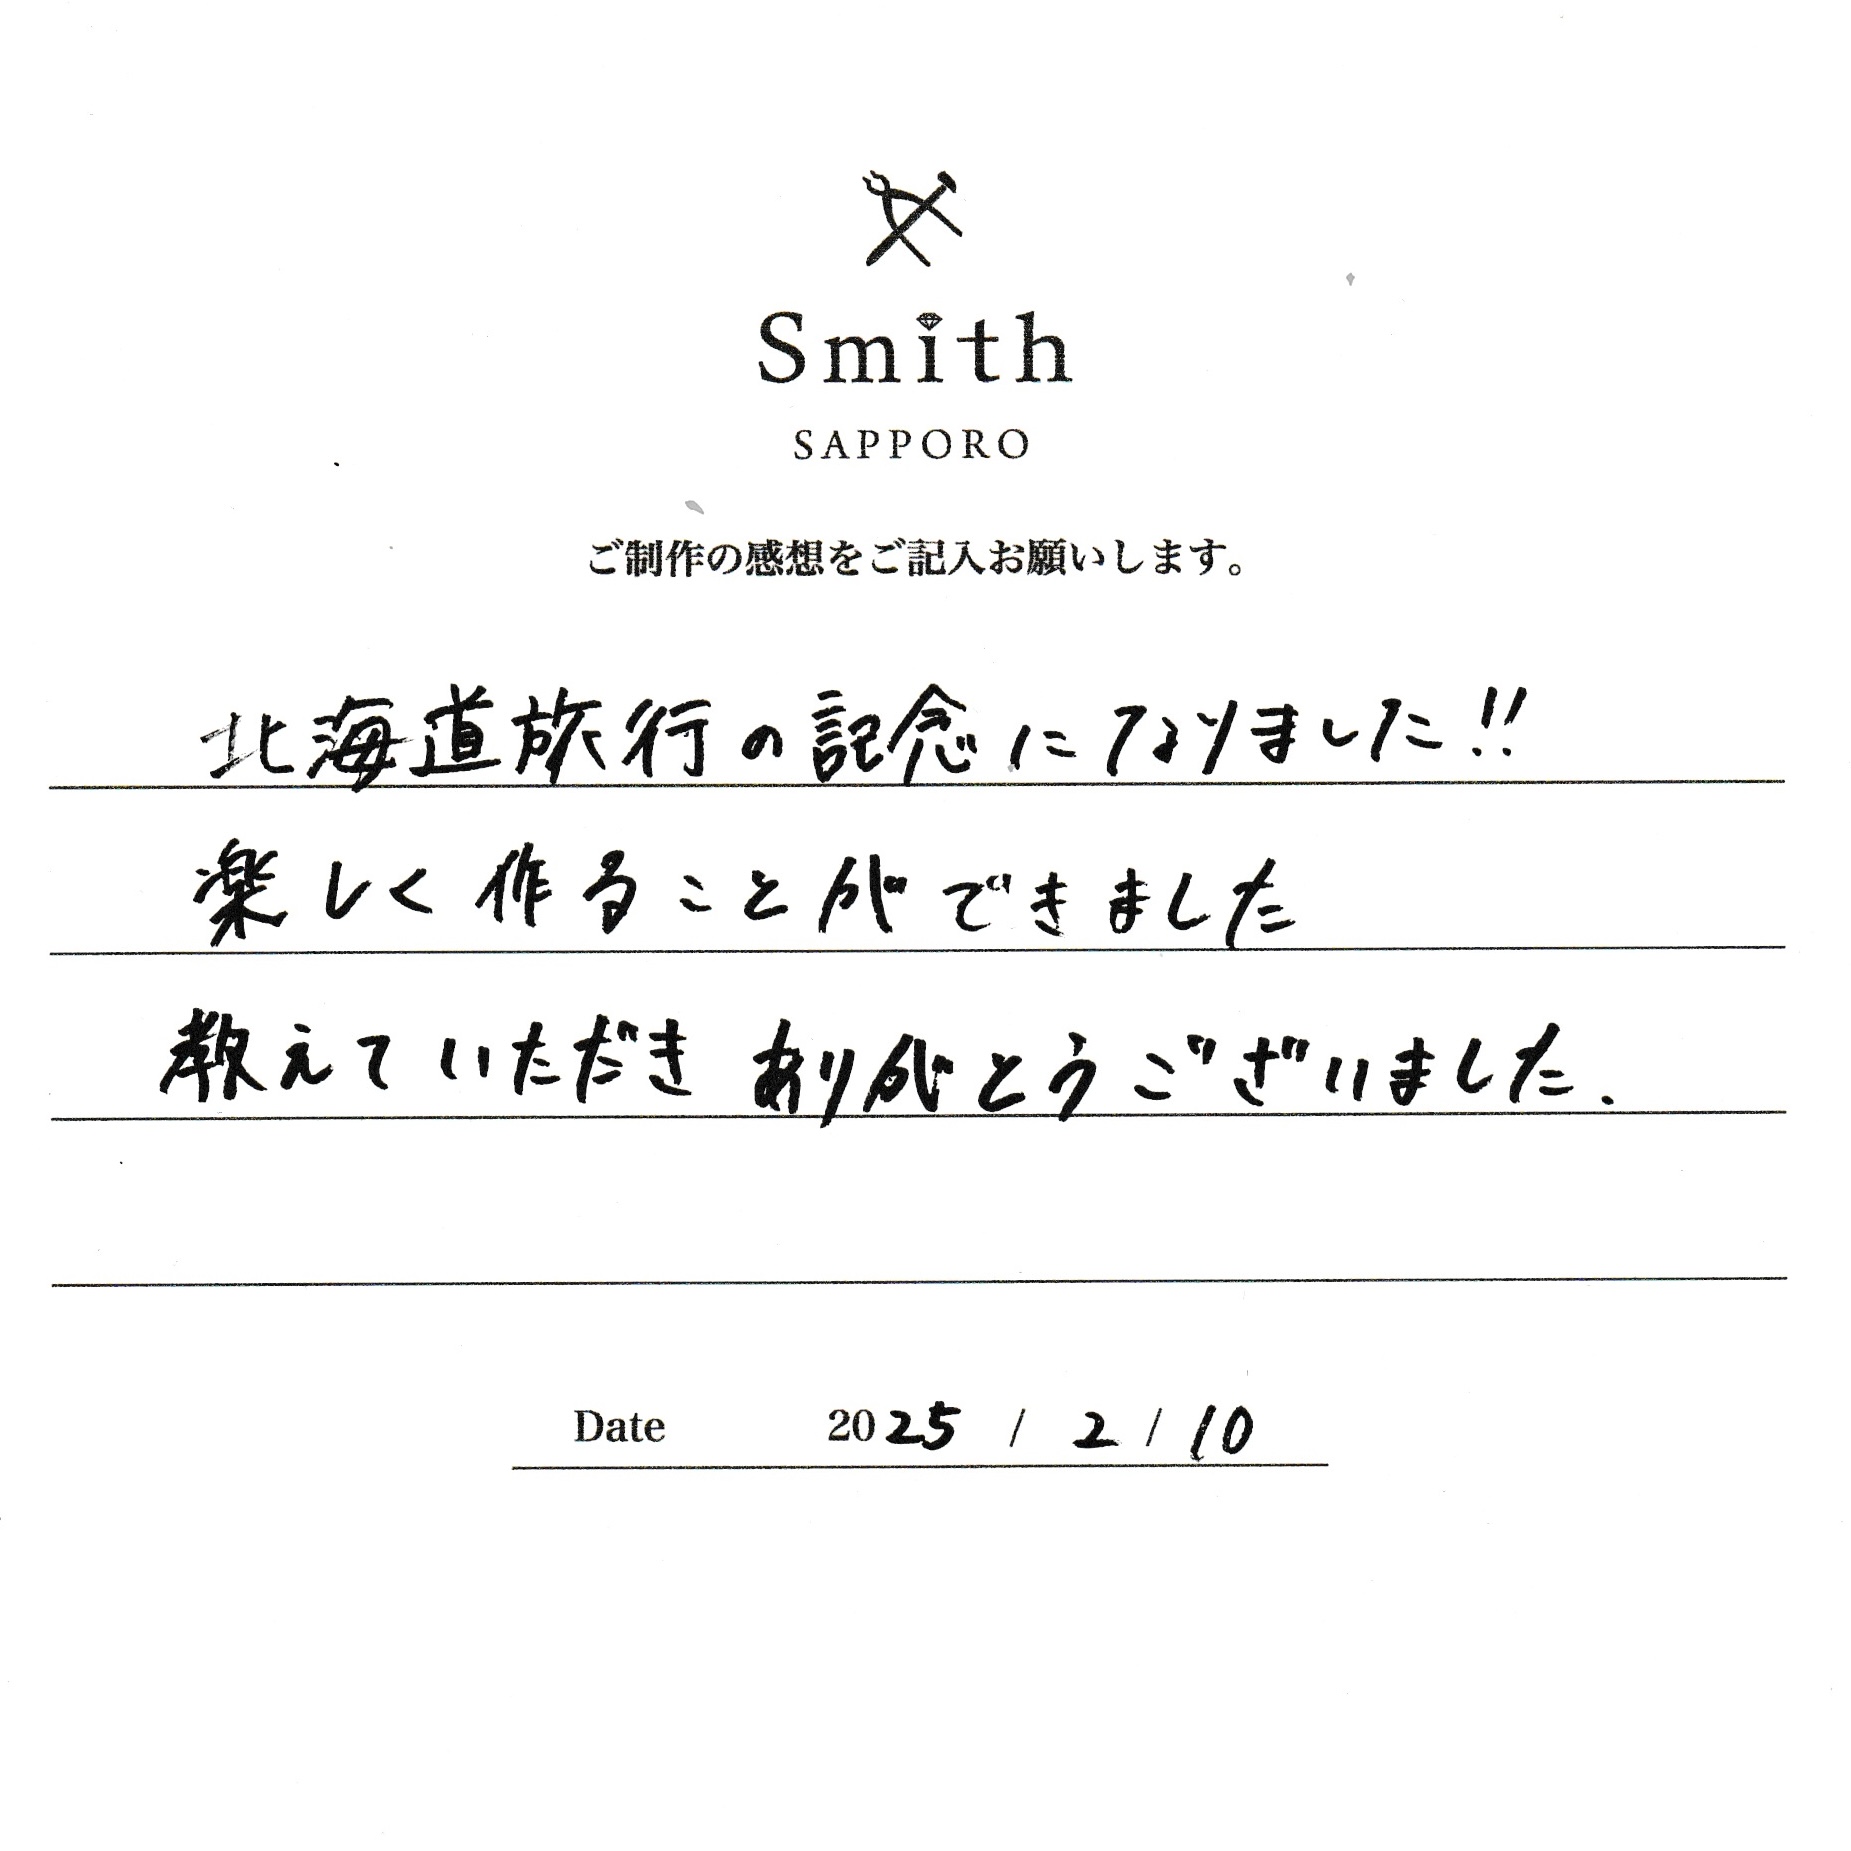 Smith
SAPPORO
ご制作の感想をご記入お願いします。
北海道旅行の記念になりました!!
楽しく作ることができました
教えていただき ありがとうございました.
Date 2025 / 2 / 10